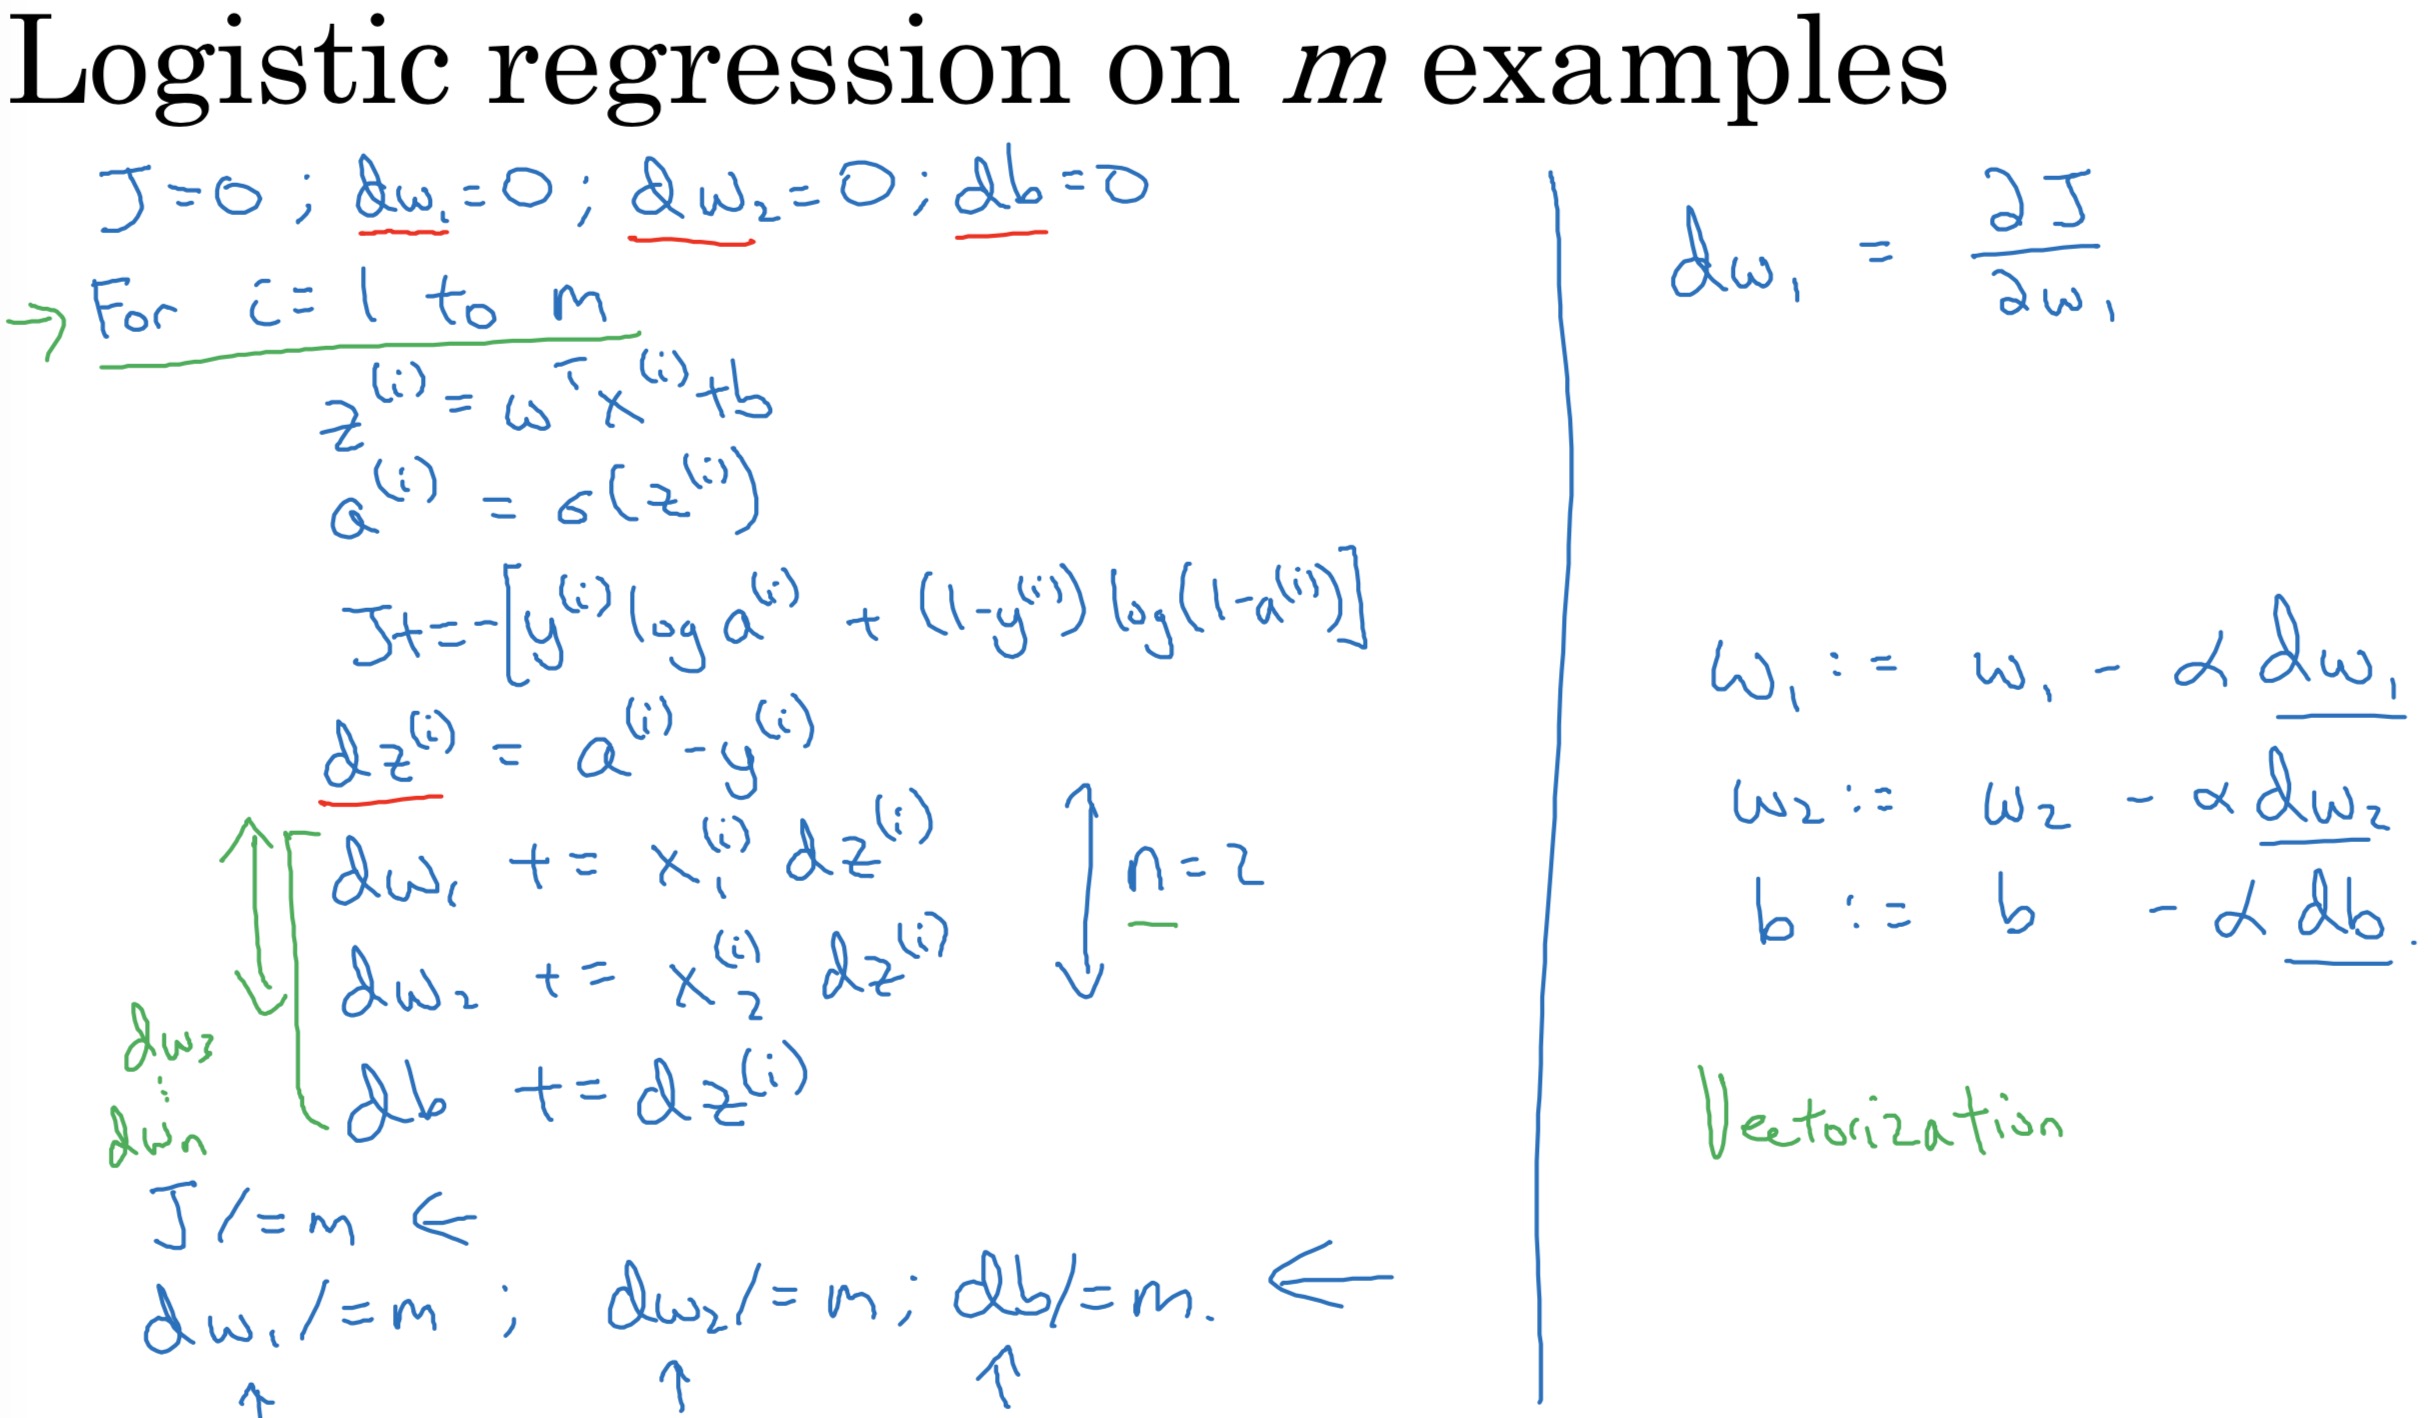 Logistic regression on m examples
J=0; dw₁=0; dw₂=0; db=0
For i=1 to m
z⁽ⁱ⁾ = wᵀx⁽ⁱ⁾+b
a⁽ⁱ⁾ = σ(z⁽ⁱ⁾)
J+=-[y⁽ⁱ⁾ log a⁽ⁱ⁾ + (1-y⁽ⁱ⁾) log(1-a⁽ⁱ⁾)]
dz⁽ⁱ⁾ = a⁽ⁱ⁾-y⁽ⁱ⁾
dw₁ += x₁⁽ⁱ⁾ dz⁽ⁱ⁾
dw₂ += x₂⁽ⁱ⁾ dz⁽ⁱ⁾
n=2
db += dz⁽ⁱ⁾
dw₃
⋮
dwₙ
J/=m ←
dw₁/=m; dw₂/=m; db/=m. ←
dw₁ = ∂J/∂w₁
w₁ := w₁ - α dw₁
w₂ := w₂ - α dw₂
b := b - α db.
Vectorization